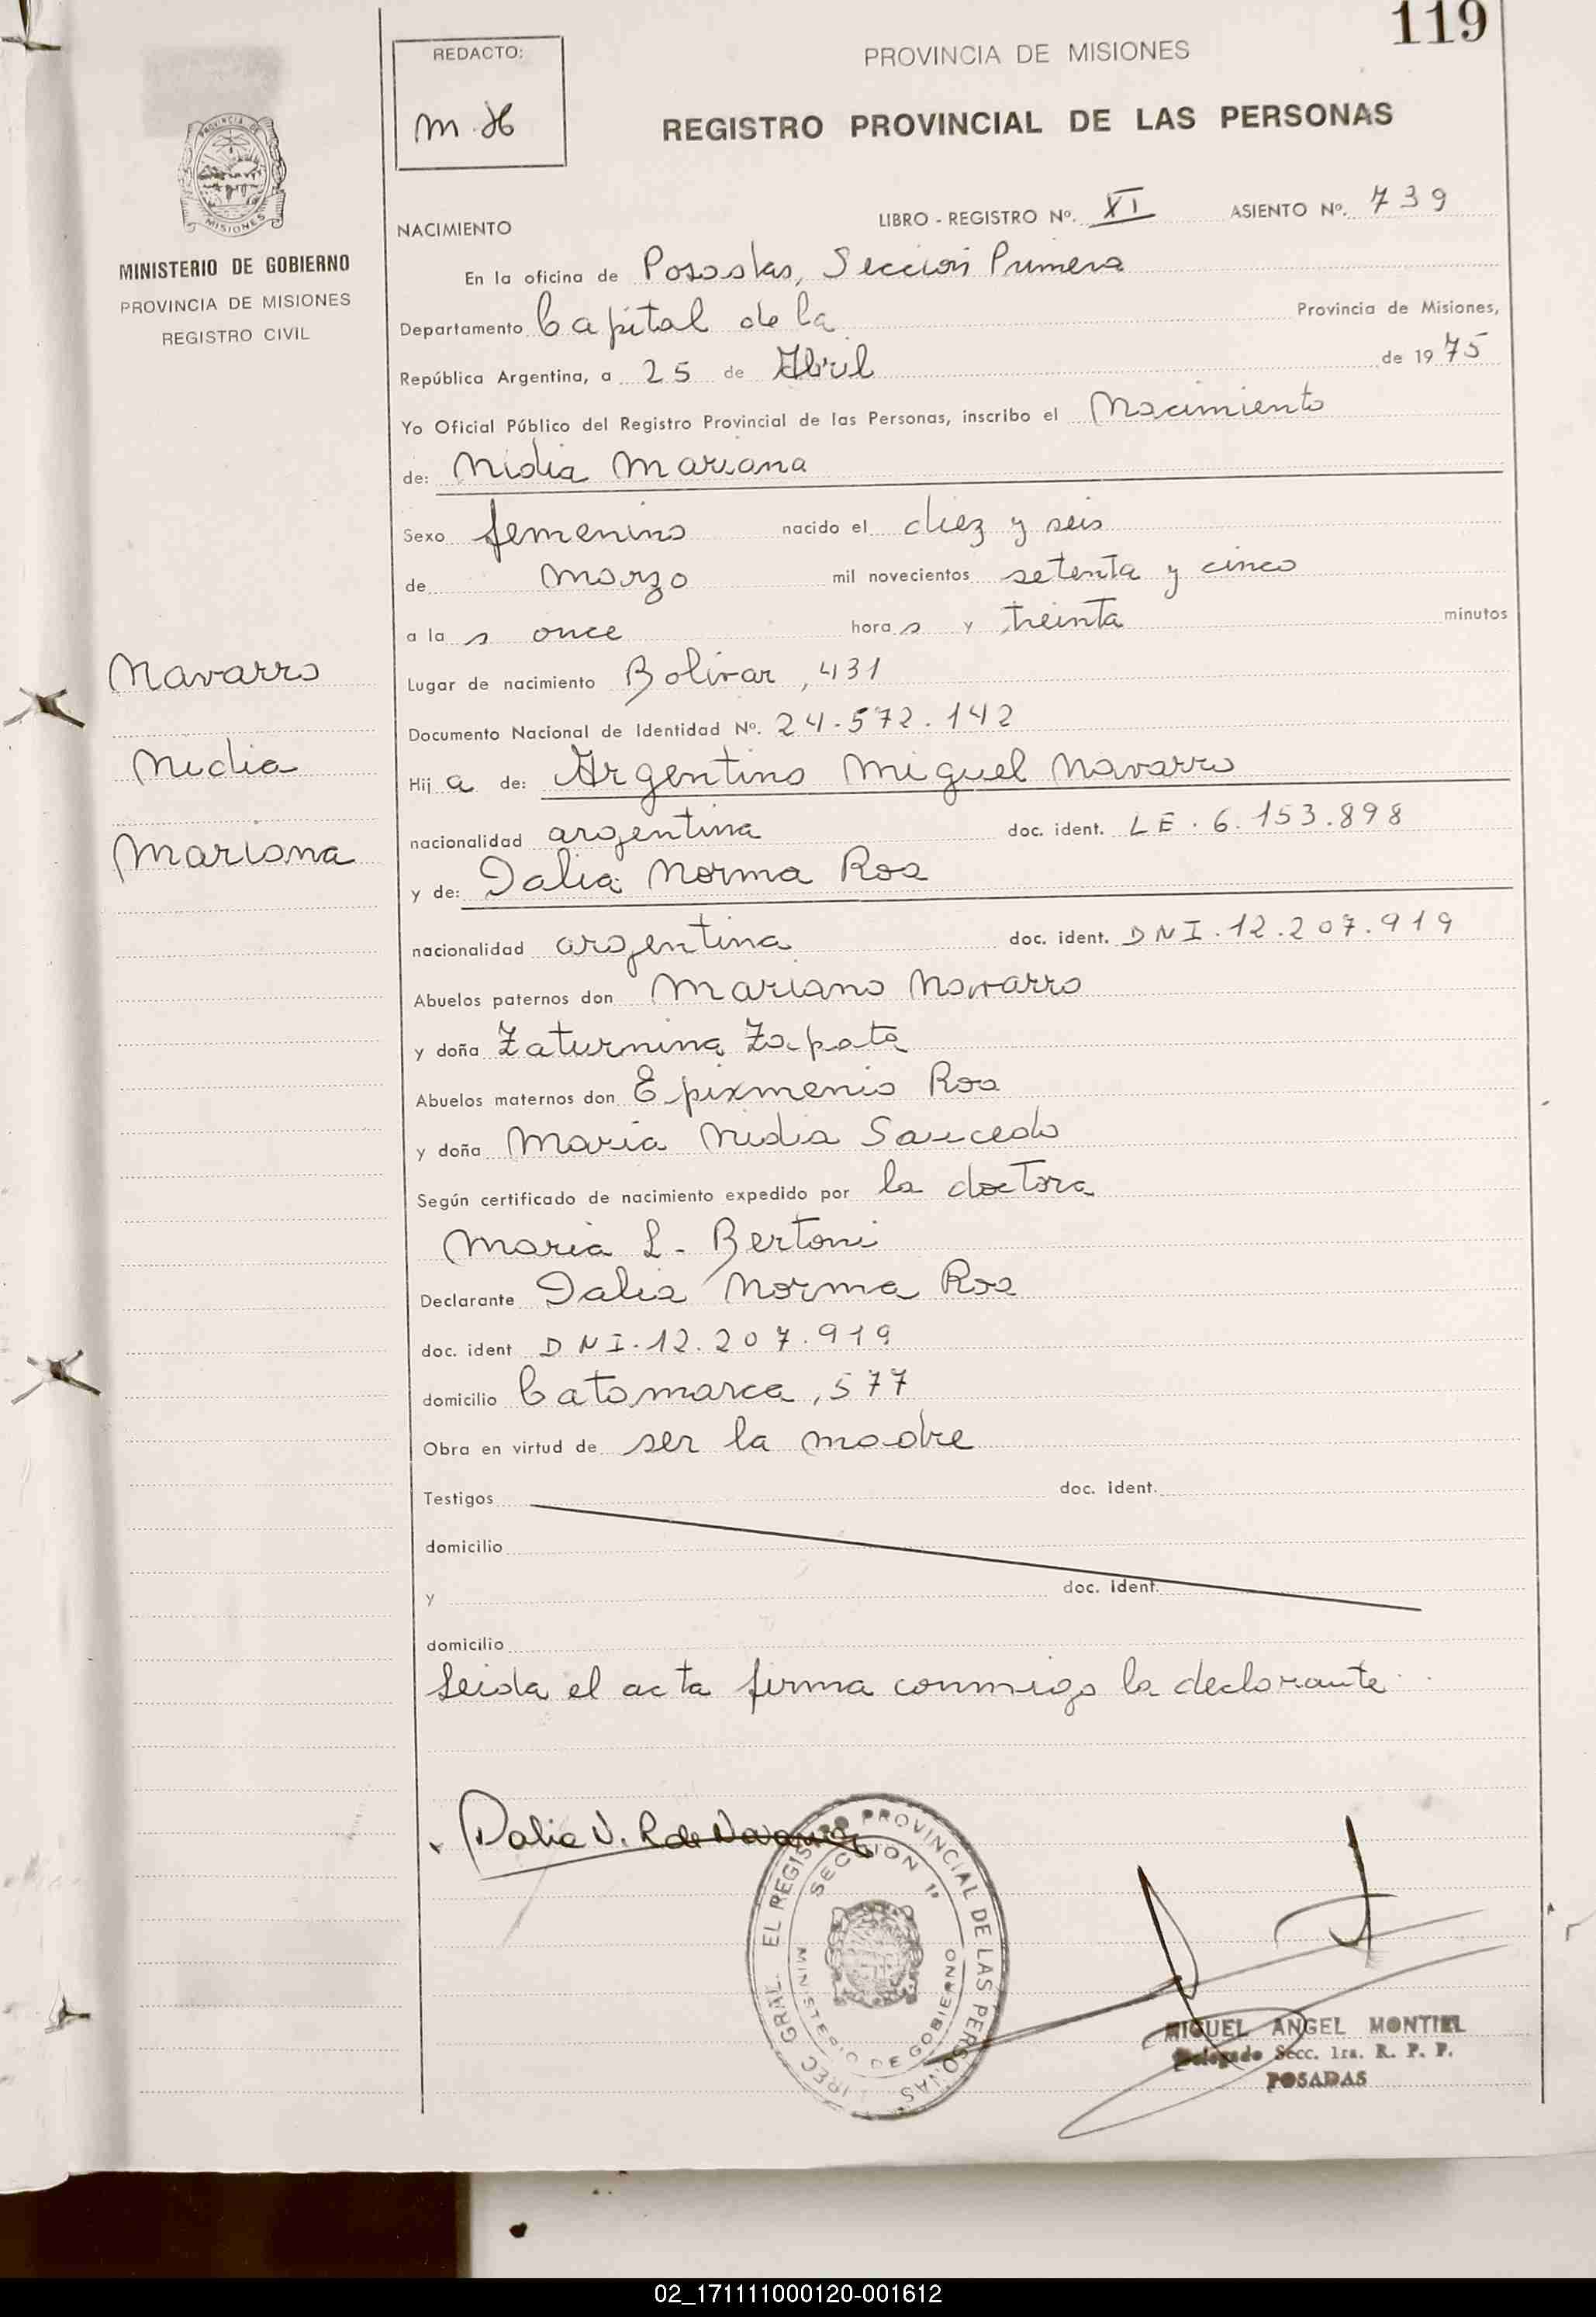 119
REDACTO:
M.H
PROVINCIA DE MISIONES
REGISTRO PROVINCIAL DE LAS PERSONAS
PROVINCIA DE
MISIONES
MINISTERIO DE GOBIERNO
PROVINCIA DE MISIONES
REGISTRO CIVIL
NACIMIENTO LIBRO - REGISTRO Nº. XI ASIENTO Nº. 739
En la oficina de Posadas, Sección Primera
Departamento Capital de la Provincia de Misiones,
República Argentina, a 25 de Abril de 1975
Yo Oficial Público del Registro Provincial de las Personas, inscribo el Nacimiento
de: Nidia Mariana
Sexo femenino nacido el diez y seis
de marzo mil novecientos setenta y cinco
a la s once hora s y treinta minutos
Navarro
Nidia
Mariana
Lugar de nacimiento Bolívar, 431
Documento Nacional de Identidad Nº. 24.572.142
Hij a de: Argentino Miguel Navarro
nacionalidad argentina doc. ident. LE. 6.153.898
y de: Dalia Norma Roa
nacionalidad argentina doc. ident. DNI.12.207.919
Abuelos paternos don Mariano Navarro
y doña Zaturnina Zapata
Abuelos maternos don Epixmenio Roa
y doña María Nidia Saucedo
Según certificado de nacimiento expedido por la doctora
María L. Bertoni
Declarante Dalia Norma Roa
doc. ident DNI.12.207.919
domicilio Catamarca, 577
Obra en virtud de ser la madre
Testigos doc. ident.
domicilio
y doc. ident.
domicilio
Leida el acta firma conmigo la declarante
Dalia N. R de Navarro
DIREC GRAL. EL REGISTRO PROVINCIAL DE LAS PERSONAS
SECCION 1ª
MINISTERIO DE GOBIERNO
MIGUEL ANGEL MONTIEL
Delegado Secc. 1ra. R. P. P.
POSADAS
02_171111000120-001612